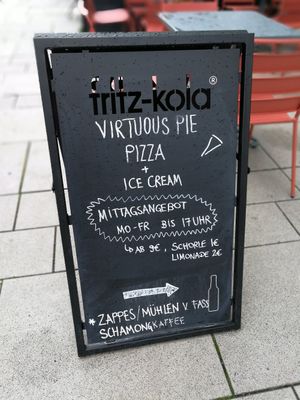 fritz-kola®
VIRTUOUS PIE
PIZZA
+
ICE CREAM
MITTAGSANGEBOT
MO-FR BIS 17 UHR
↳ AB 9€, SCHORLE 1€
LIMONADE 2€
* ZAPPES/MÜHLEN V. FASS
SCHAMONG KAFFEE